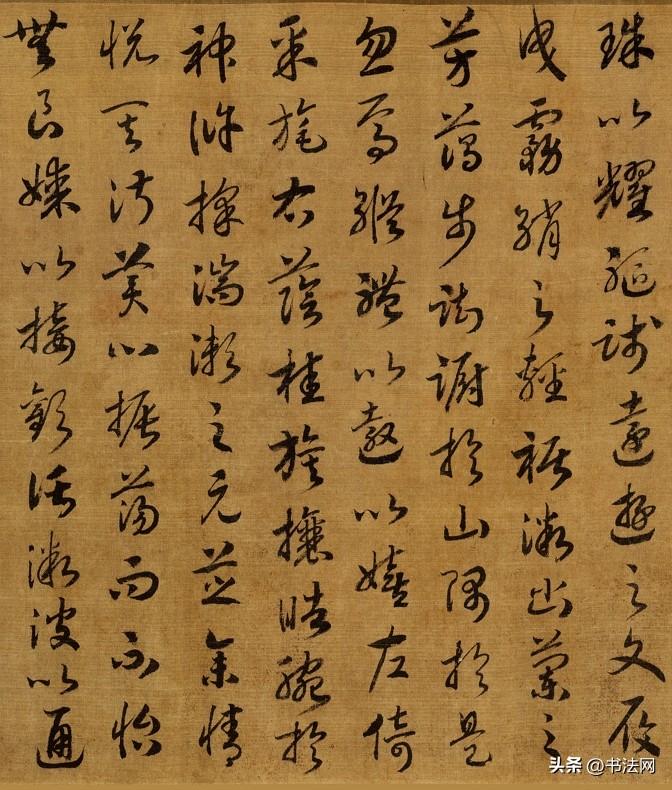 珠以耀軀踐遠遊之文履
曳霧綃之輕裾微幽蘭之
芳藹步踟躕於山隅於是
忽焉縱體以遨以嬉左倚
采旄右蔭桂旗攘皓腕於
神滸採湍瀨之元芝余情
悅其淑美心振蕩而不怡
無良媒以接歡託微波以通
头条 @书法网